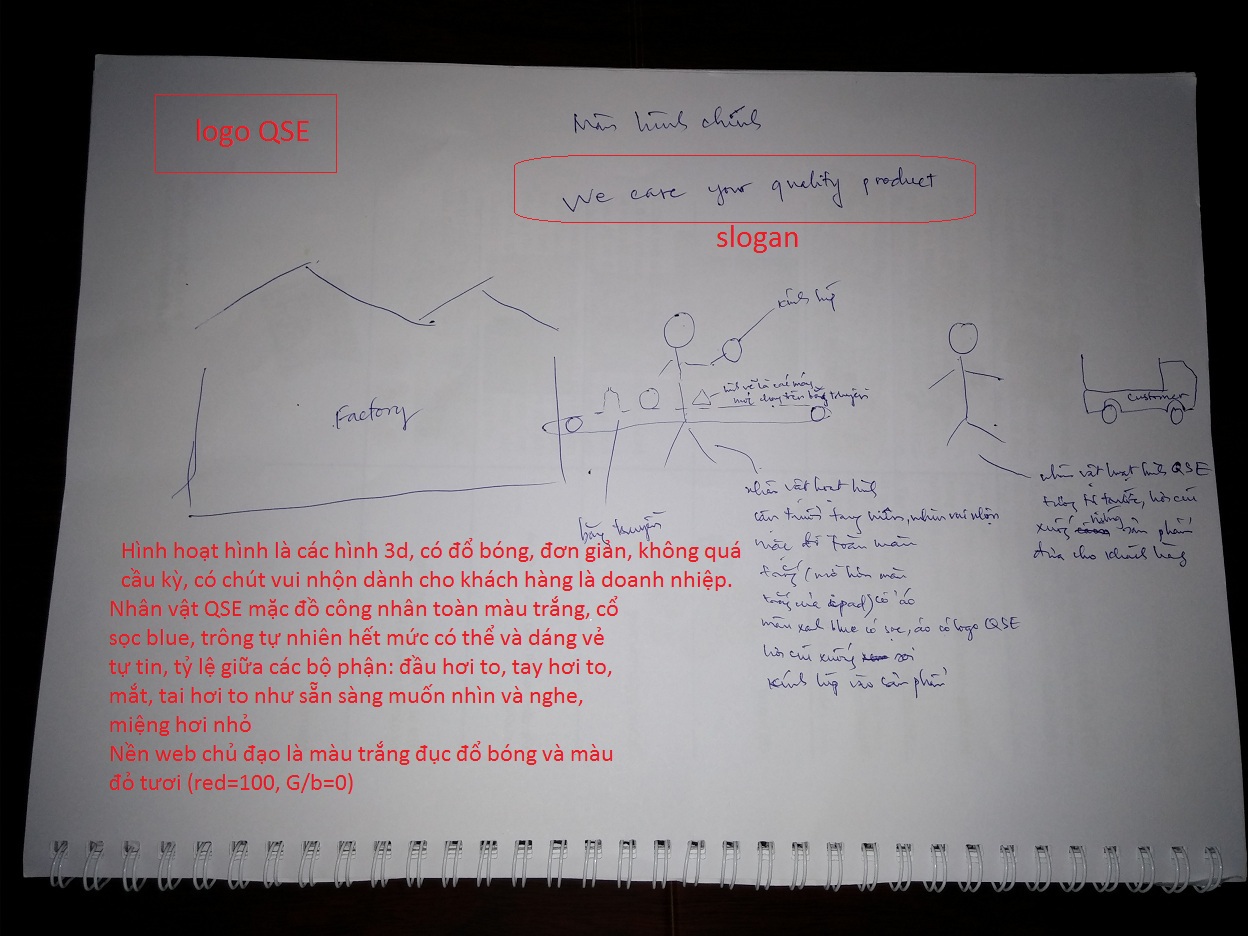 logo QSE
Màn hình chính
We care your quality product
slogan
kính lúp
Factory
hình vẽ là các máy
móc chạy trên băng truyền
customer
băng truyền
nhân vật hoạt hình
mặc đồ toàn màu
trắng
màu xanh blue có sọc, áo có logo QSE
hơi cúi xuống soi
kính lúp vào sản phẩm
nhân vật hoạt hình QSE
hơi cúi
xuống sản phẩm
đưa cho khách hàng
Hình hoạt hình là các hình 3d, có đổ bóng, đơn giản, không quá
cầu kỳ, có chút vui nhộn dành cho khách hàng là doanh nhiệp.
Nhân vật QSE mặc đồ công nhân toàn màu trắng, cổ
sọc blue, trông tự nhiên hết mức có thể và dáng vẻ
tự tin, tỷ lệ giữa các bộ phận: đầu hơi to, tay hơi to,
mắt, tai hơi to như sẵn sàng muốn nhìn và nghe,
miệng hơi nhỏ
Nền web chủ đạo là màu trắng đục đổ bóng và màu
đỏ tươi (red=100, G/b=0)